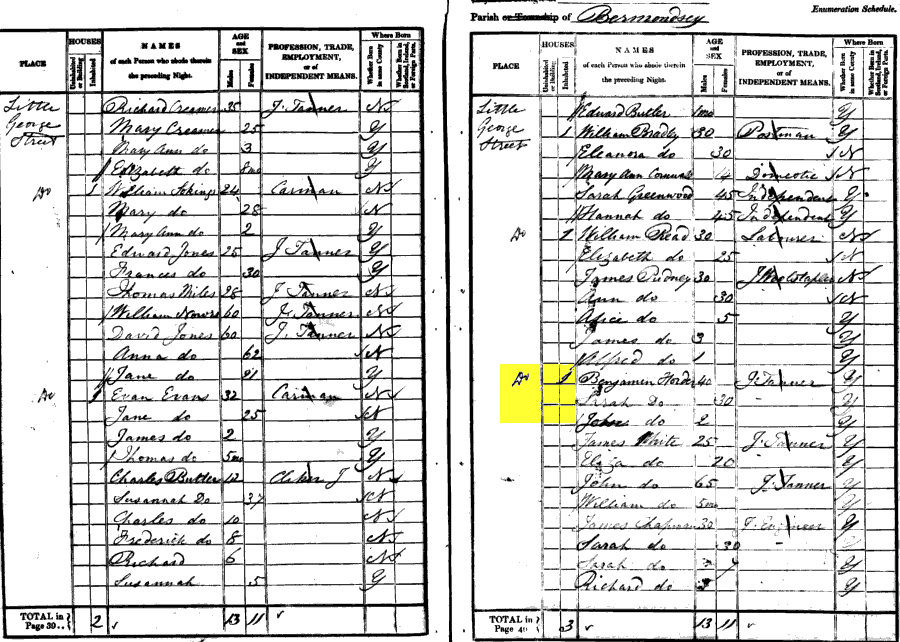 HOUSES
AGE and SEX
Where Born
PLACE
Uninhabited or Building
Inhabited
NAMES
of each Person who abode therein
the preceding Night.
Males
Females
PROFESSION, TRADE,
EMPLOYMENT,
or of
INDEPENDENT MEANS.
Whether Born in same County
Whether Born in Scotland, Ireland, or Foreign Parts.
Little Richard Creamer 25 J. Tanner N
George Mary Creamer 25 Y
Street Mary Ann do 3 Y
Elizabeth do 8mo Y
Do 1 William 24 Carman N
Mary do 28 N
Mary Ann do 2 Y
Edward Jones 25 J Tanner Y
Frances do 30 Y
Thomas Miles 28 J Tanner N
William 60 J. Tanner N
David Jones 60 J. Tanner N
Anna do 62 N
Jane do 21 Y
Do 1 Evan Evans 32 Carman N
Jane do 25 N
James do 2 Y
Thomas do 5mo Y
Charles Butler 12 J N
Susannah Do 37 N
Charles do 10 N
Frederick do 8 N
Richard 6 N
Susannah 5 Y
TOTAL in Page 39 2 13 11
Parish or Township of Bermondsey
Enumeration Schedule.
HOUSES
AGE and SEX
Where Born
PLACE
Uninhabited or Building
Inhabited
NAMES
of each Person who abode therein
the preceding Night.
Males
Females
PROFESSION, TRADE,
EMPLOYMENT,
or of
INDEPENDENT MEANS.
Whether Born in same County
Whether Born in Scotland, Ireland, or Foreign Parts.
Little Edward Butler 1mo Y
George 1 William Bradly 30 Postman Y
Street Eleanora do 30 N
Mary Ann 14 Domestic N
Sarah Greenwood 45 Independent Y
Hannah do 45 Independent Y
Do 1 William Read 30 Labourer N
Elizabeth do 25 N
James Pudney 30 J Woolstapler N
Ann do 30 N
Alice do 5 Y
James do 3 Y
Alfred do 1 Y
Do 1 Benjamen Horder 40 J. Tanner Y
Sarah Do 30 Y
John do 2 Y
James White 25 J. Tanner Y
Eliza do 20 Y
John do 65 J. Tanner Y
William do 5mo Y
James Chapman 30 J. Engineer Y
Sarah do 30
Sarah do 7 Y
Richard do 3 Y
TOTAL in Page 40 3 13 11